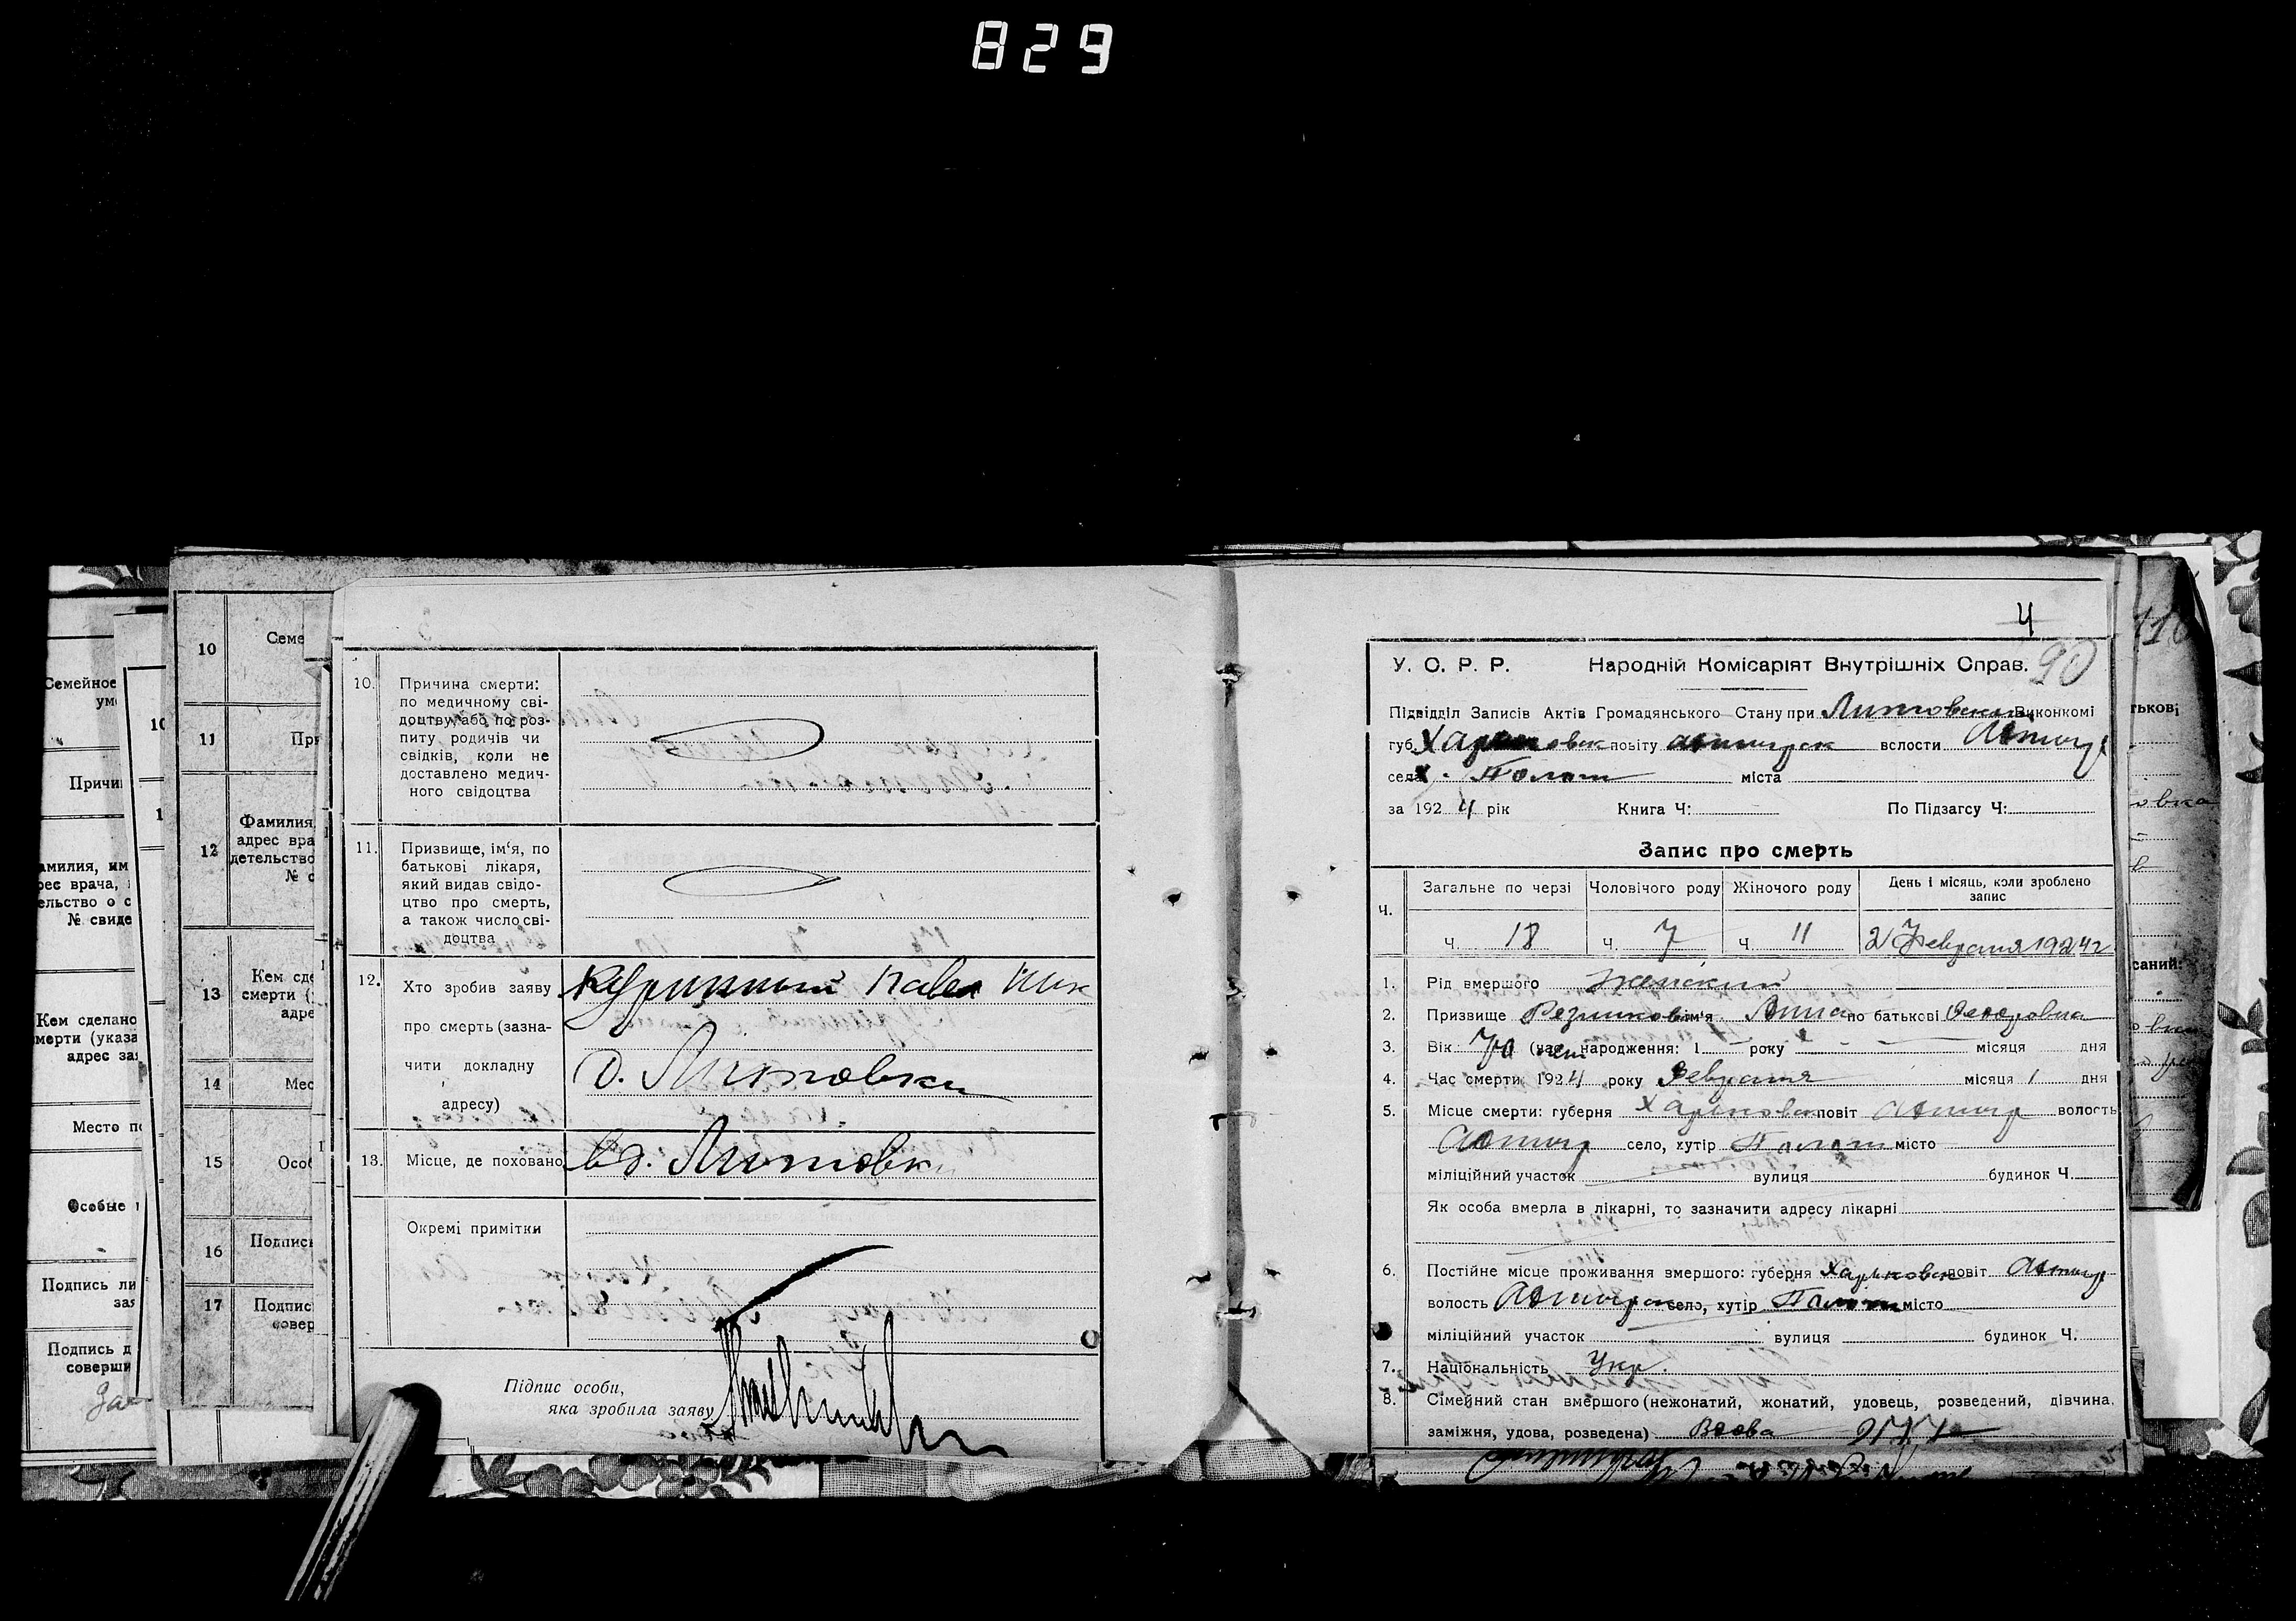 829
Семейное
10
Семе
11
Причи
12
Фамилия
адрес вра
детельство
№ с
амилия, им
рес врача,
ельство о с
№ свиде
13
Кем сде
смерти (
адре
Кем сделано
мерти (указа
адрес за
14
Мес
Место п
15
Особ
Особые
16
Подпись
Подпись ли
зая
17
Подпис
совер
Подпись д
соверши
10. Причина смерти:
по медичному сві-
доцтву, або по роз-
питу родичів чи
свідків, коли не
доставлено медич-
ного свідоцтва
11. Призвище, ім'я, по
батькові лікаря,
який видав свідо-
цтво про смерть,
а також число сві-
доцтва
12. Хто зробив заяву
про смерть (зазна-
чити докладну
адресу)
Куринный Павел Ник
д. Литовки
13. Місце, де поховано в д. Литовки
Окремі примітки
Підпис особи,
яка зробила заяву
4
90
У. С. Р. Р. Народній Комісаріят Внутрішніх Справ.
Підвідділ Записів Актів Громадянського Стану при Литовском Виконкомі
губ. Харьковск повіту ахтырск волости Ахтыр
села х. міста
за 1924 рік Книга Ч: По Підзагсу Ч:
Запис про смерть
Ч. Загальне по черзі Чоловічого роду Жіночого роду День і місяць, коли зроблено запис
Ч. 18 Ч. 7 Ч. 11 2 февраля 1924 г
1. Рід вмершого женский
2. Призвище Резникова ім'я Анна по батькові Федоровна
3. Вік: 70 лет (час народження: 1 року місяця дня
4. Час смерти 1924 року Февраля місяця 1 дня
5. Місце смерти: губерня Харьковск повіт Ахтыр волость
Ахтыр село, хутір місто
міліційний участок вулиця будинок Ч.
Як особа вмерла в лікарні, то зазначити адресу лікарні
6. Постійне місце проживання вмершого: губерня Харьковск повіт Ахтыр
волость Ахтырск село, хутір місто
міліційний участок вулиця будинок Ч.
7. Національність Укр.
8. Сімейний стан вмершого (нежонатий, жонатий, удовець, розведений, дівчина.
заміжня, удова, розведена) Вдова